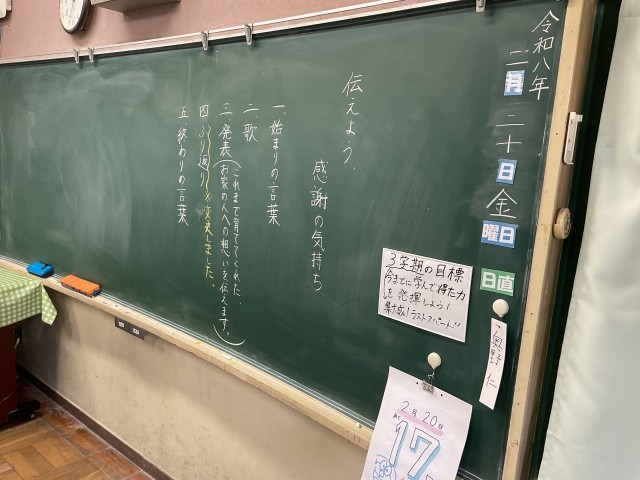 令和八年
二月二十日金曜日
日直
奥野 仁
伝えよう、
感謝の気持ち
一、始まりの言葉
二、歌
三、発表(これまで育ててくれた、
お家の人への想いを伝えます。)
四、ふり返り
※変更しました。
五、終わりの言葉
3学期の目標
今までに学んで得た力
を発揮しよう!
集大成!ラストスパート!!
2月20日
あと
17